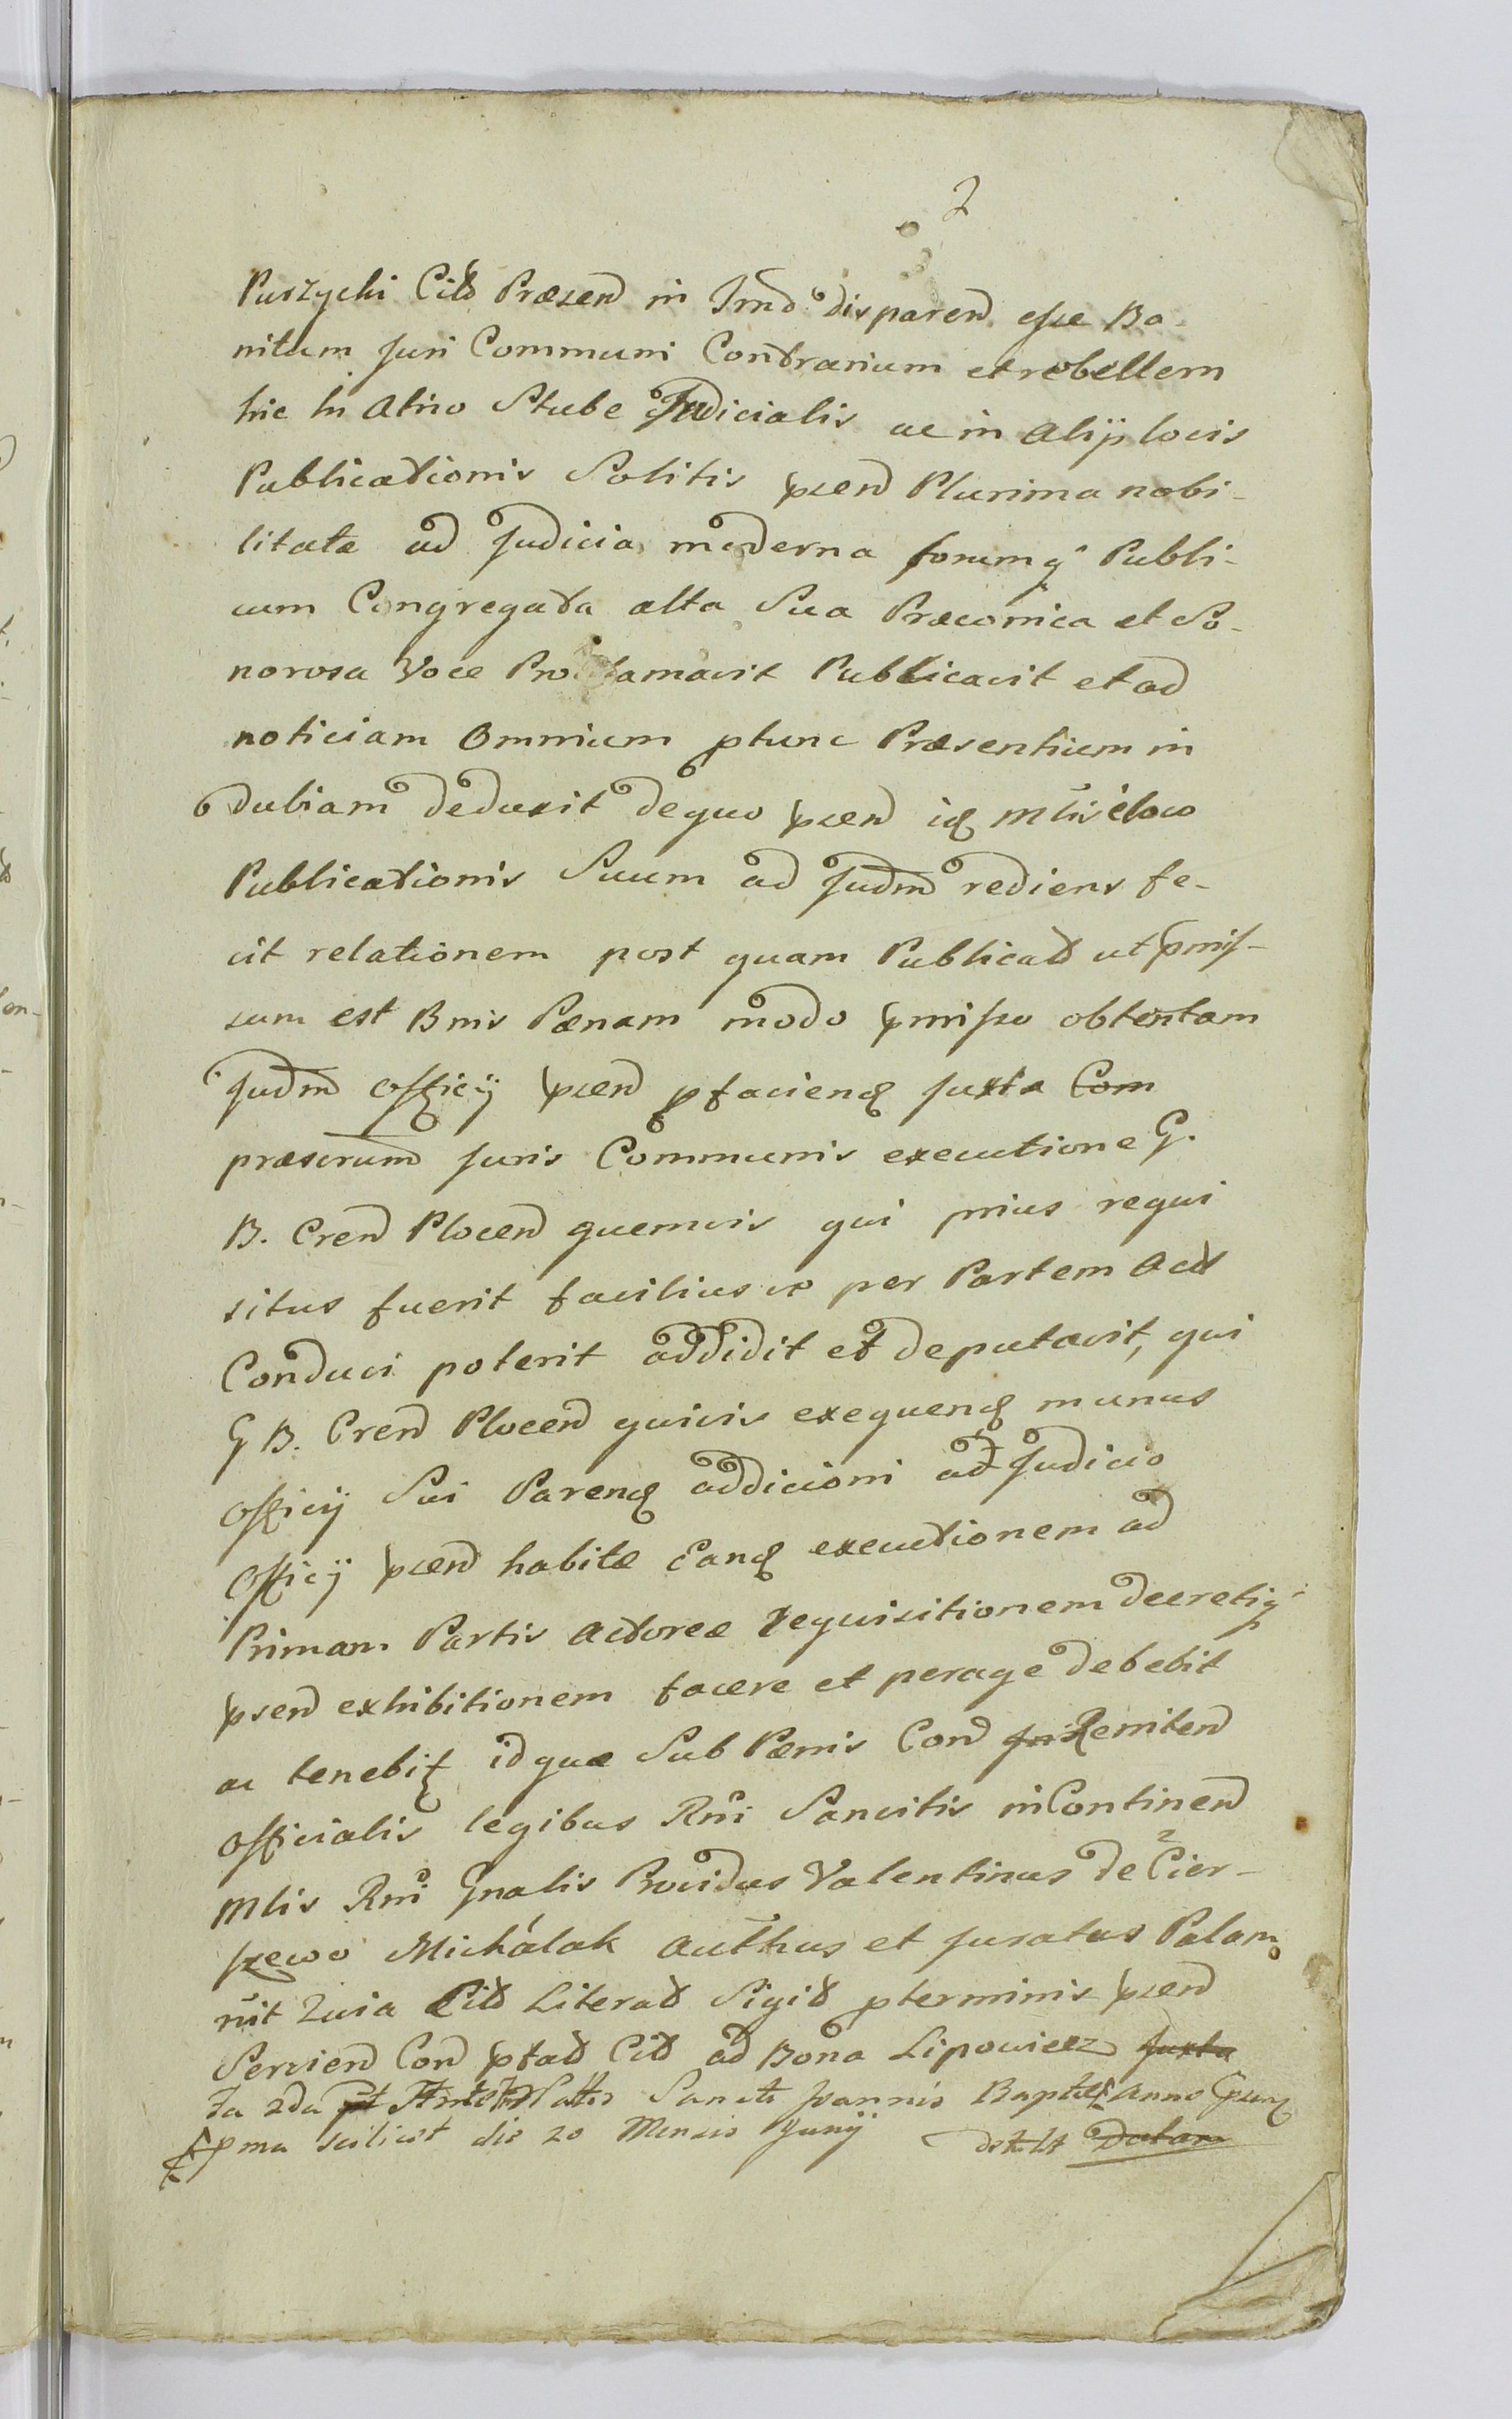 2
Puszycki Citd Præsend in Jmd disparend esse Ba-
nitum Juri Communi Contrarium et rebellem
hic in Atrio Stubæ Judicialis ac in Alijs locis
Publicationis Solitis psend Plurima nobi-
litate ad Judicia moderna forumq Publi-
cum Congregata alta Sua Præconica et So-
norosa Voce Proclamavit Publicavit et ad
noticiam Omnium ptunc Præsentium in
dubiam deduxit de quo psend idq Mtris eloco
Publicationis Suum ad Judm rediens fe-
cit relationem post quam Publicatd ut pmis-
sum est Bnis Pænam modo pmisso obtentam
Judm officij psend pfaciend Juxta Com
præscrum Juris Communis executione G.
B. Cren Plocen quemvis qui prius requi
situs fuerit facilius vo per Partem Act
Conduci poterit addidit et deputavit, qui
G B. Cren Plocen quivis exequend munus
Officij Sui Parend addicioni ad Judicio
Officij psend habitæ Eand executionem ad
Primam Partis Actoreæ requisitionem decretiq
psend exhibitionem facere et perage debebit
ac tenebit idquæ Sub Pænis Con in Remiten
officialis legibus Rni Sancitis in Continend
Mtis Rni Gnalis Providus Valentinus de Cier-
szewo Michálak Authus et Juratus Palam
rnit Quia Citd Literad Sigid pterminis psend
Servien Con ptad Citd ad Bona Lipowiecz Juxta
ta 2da Sancti Joannis Baptæ Anno
pma scilicet die 20 Mensis Junij Datam